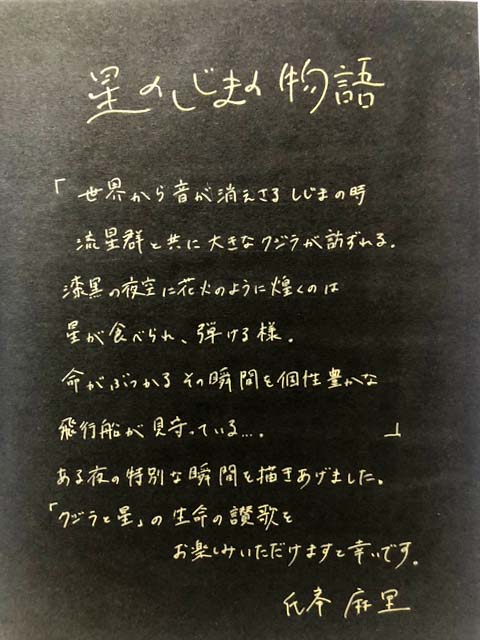 星のしじまの物語
「世界から音が消えさるしじまの時
流星群と共に大きなクジラが訪ずれる。
漆黒の夜空に花火のように煌くのは
星が食べられ、弾ける様。
命がぶつかるその瞬間を個性豊かな
飛行船が見守っている…。」
ある夜の特別な瞬間を描きあげました。
「クジラと星」の生命の讃歌を
お楽しみいただけますと幸いです。
麻里